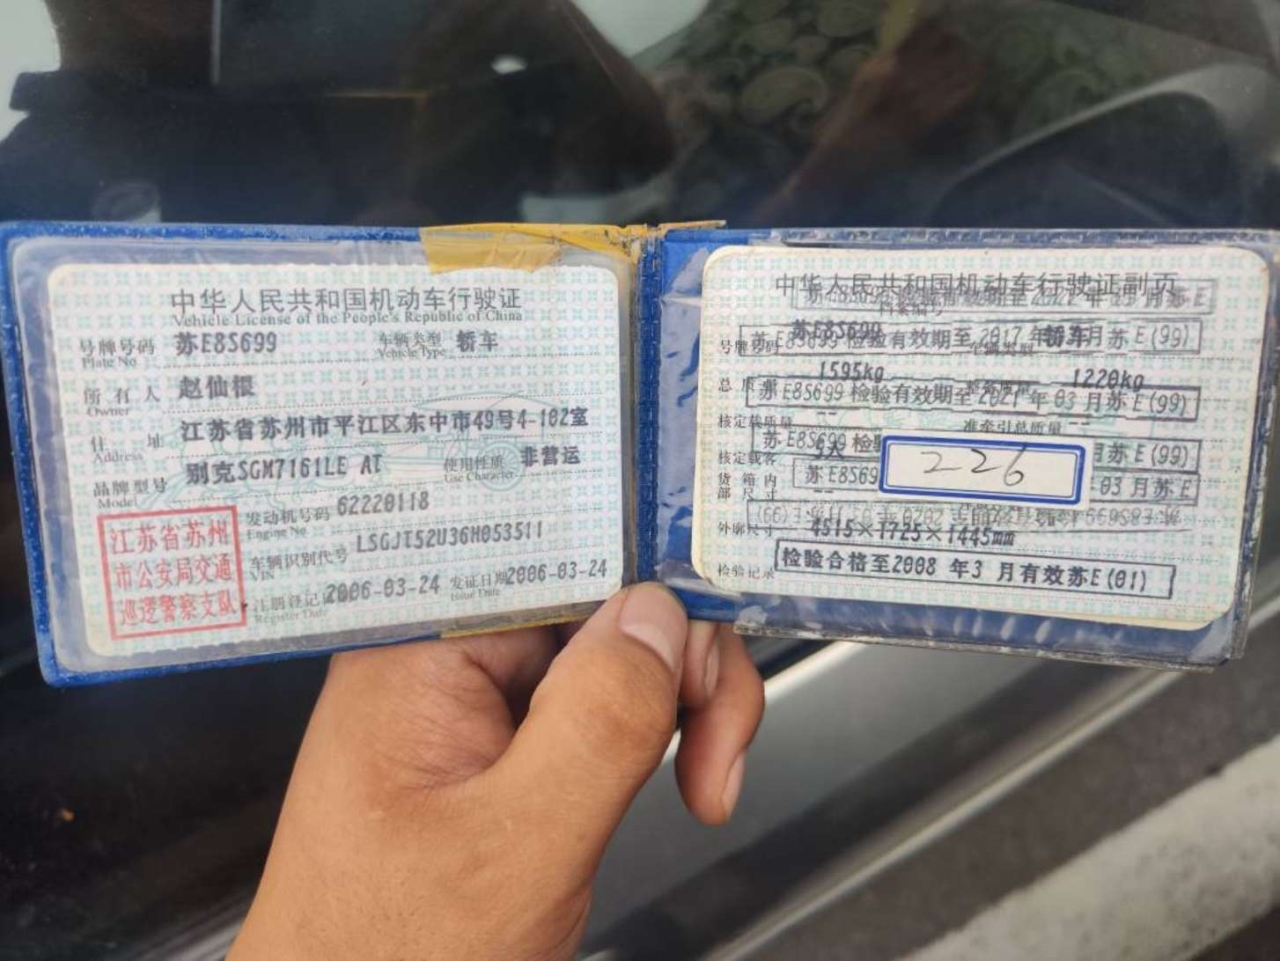 中华人民共和国机动车行驶证
Vehicle License of the People's Republic of China
号牌号码 苏E8S699 车辆类型 轿车
Plate No. Vehicle Type
所有人 赵仙根
Owner
住址 江苏省苏州市平江区东中市49号4-102室
Address
品牌型号 别克SGM7161LE AT 使用性质 非营运
Model Use Character
发动机号码 62220118
Engine No.
车辆识别代号 LSGJT52U36H053511
VIN
注册登记 2006-03-24 发证日期 2006-03-24
Register Date Issue Date
江苏省苏州
市公安局交通
巡逻警察支队
中华人民共和国机动车行驶证副页
号牌号码 苏E8S699 车辆类型 轿车
苏E8S699 检验有效期至2017年 月苏E(99)
总质量 1595kg 1220kg
苏E8S699 检验有效期至2021年03月苏E(99)
核定载质量 -- 准牵引总质量 --
苏E8S699 检验 月苏E(99)
核定载客 5人
226
货箱内部尺寸 --
苏E8S69 03月苏E
外廓尺寸 4515×1725×1445mm
检验记录 检验合格至2008年3月有效苏E(01)